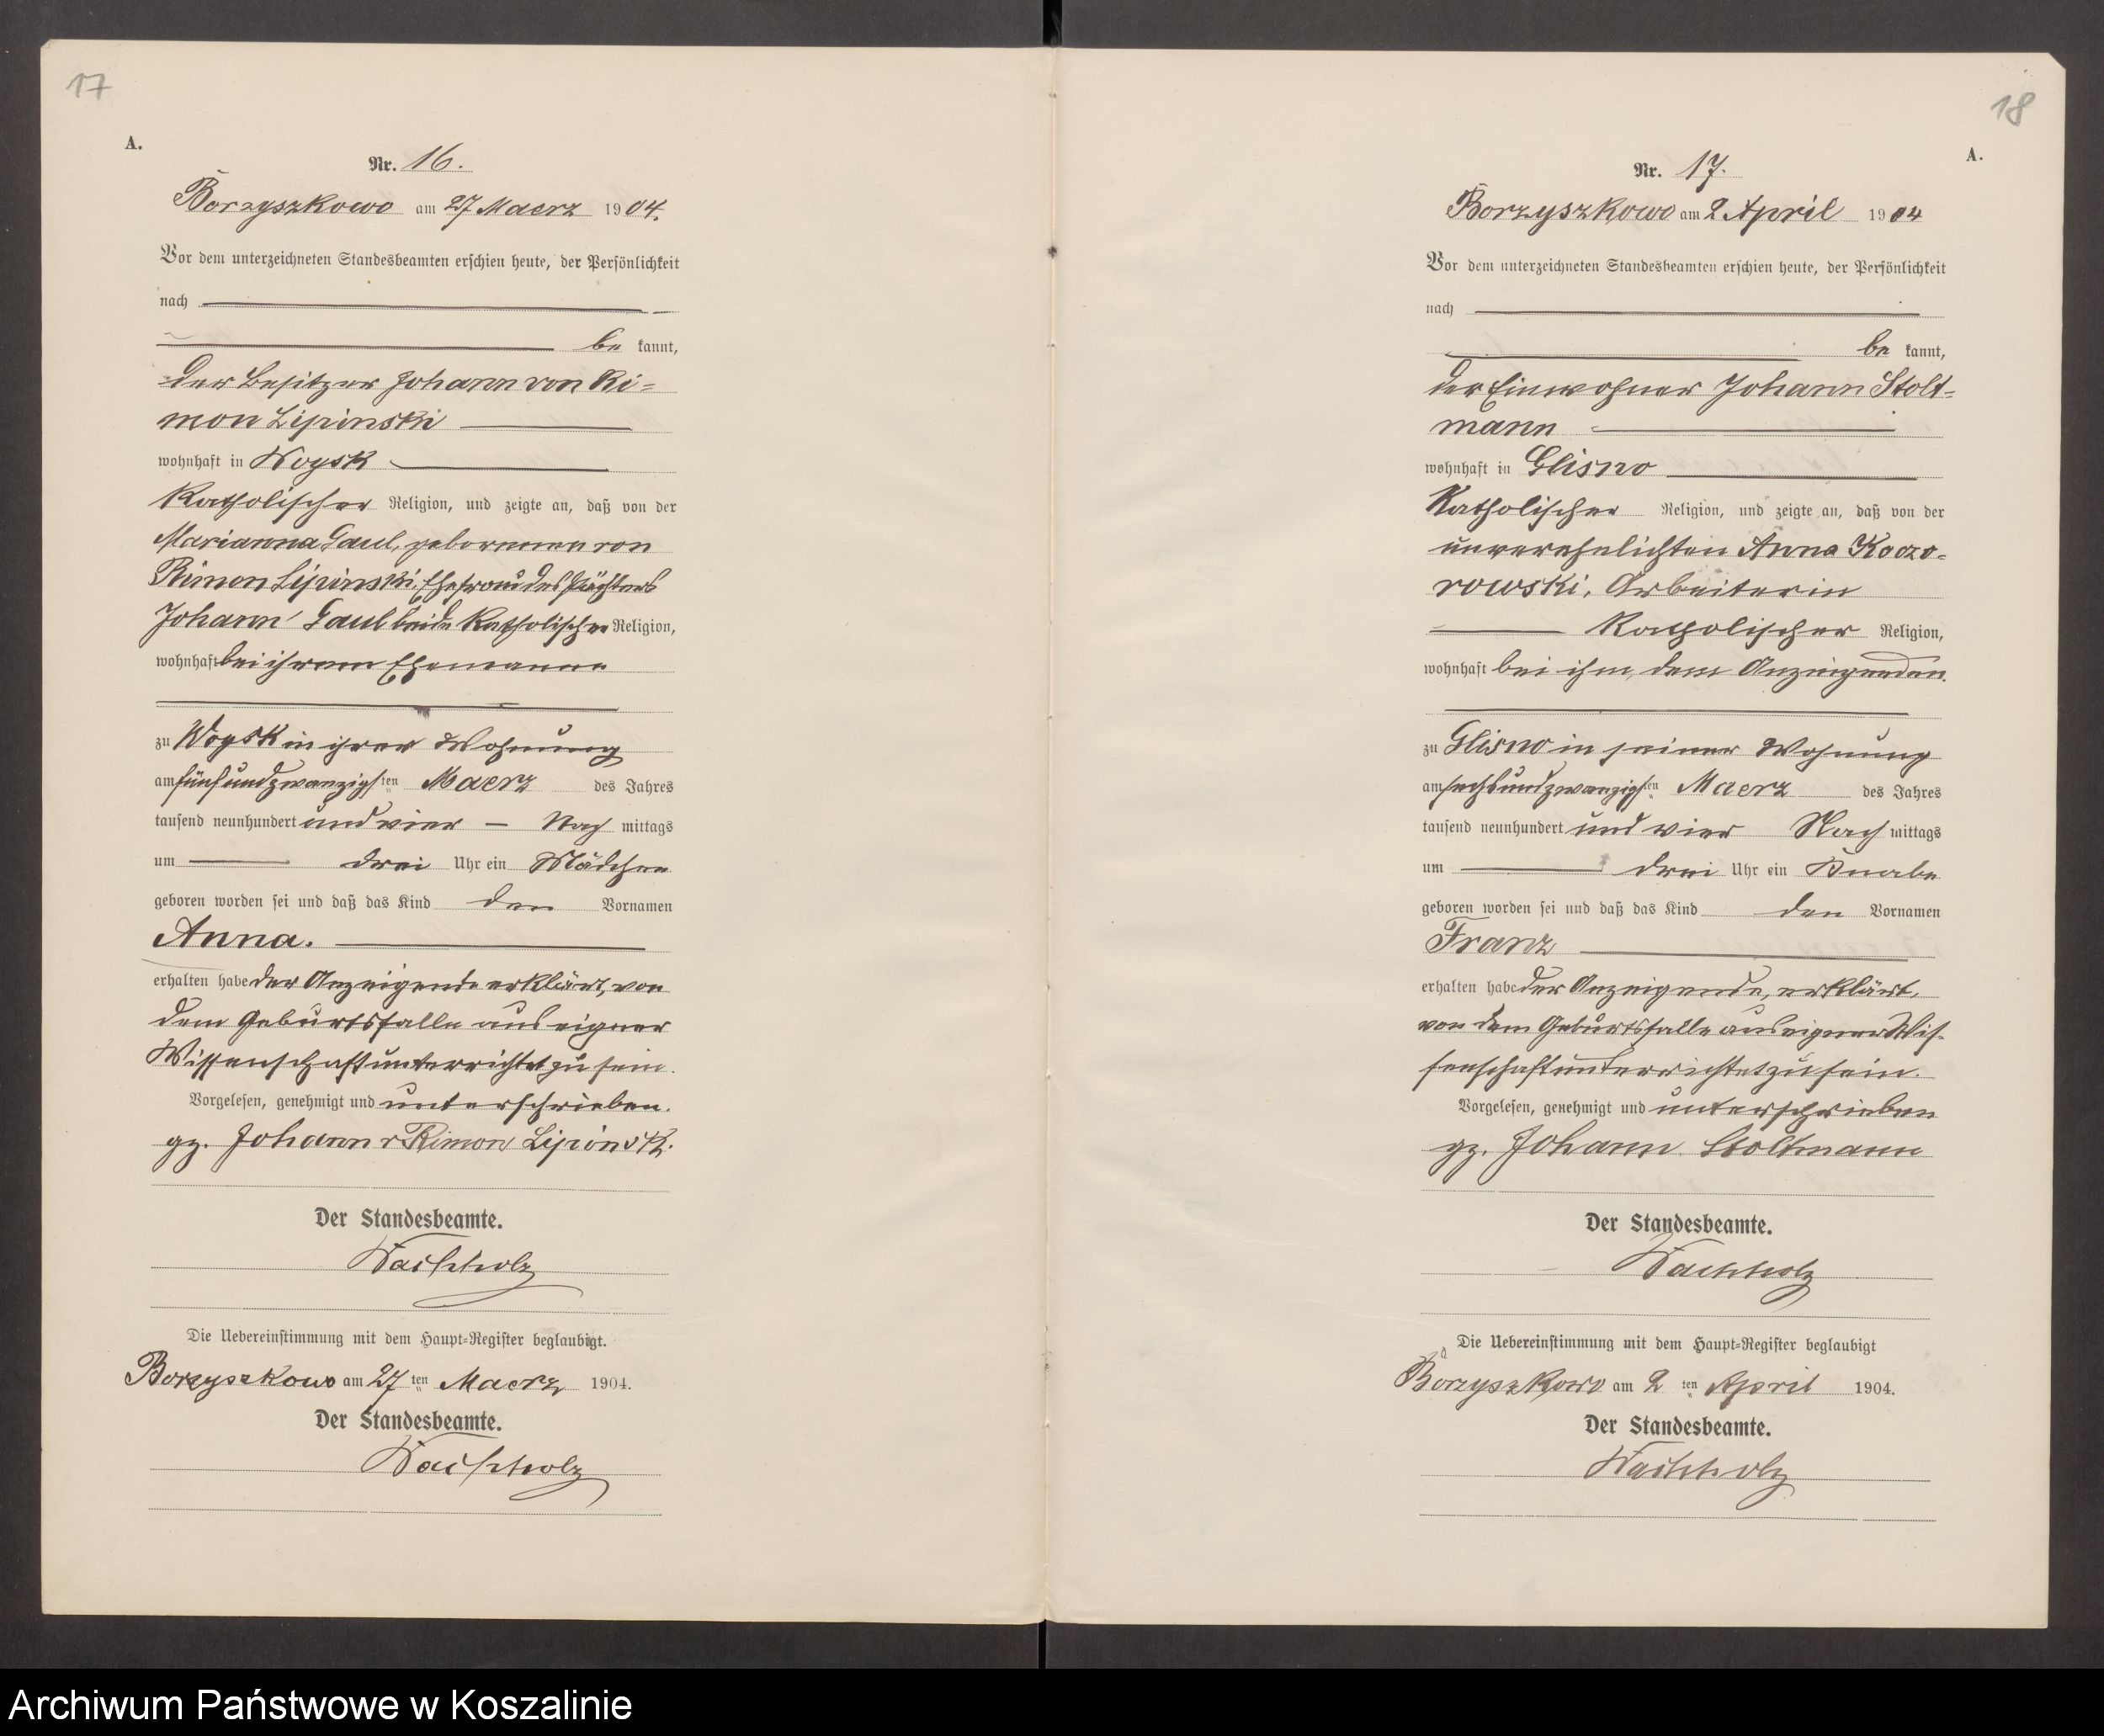 17
A.
Nr. 16.
Borzyszkowo am 27 Maerz 1904.
Vor dem unterzeichneten Standesbeamten erschien heute, der Persönlichkeit
nach
be kannt,
der Besitzer Johann von Ri=
mon Lipinski
wohnhaft in Woysk
Katholischer Religion, und zeigte an, daß von der
Marianna Gaul, geborenen von
Rimon Lipinski, Ehefrau des Pächters
Johann Gaul beide Katholischer Religion,
wohnhaft bei ihrem Ehemanne
zu Woysk in ihrer Wohnung
am fünfundzwanzigsten Maerz des Jahres
tausend neunhundert und vier – Nach mittags
um drei Uhr ein Mädchen
geboren worden sei und daß das Kind den Vornamen
Anna.
erhalten habe der Anzeigende erklärt, von
dem Geburtsfalle aus eigner
Wissenschaft unterrichtet zu sein.
Vorgelesen, genehmigt und unterschrieben.
gz. Johann v Rimon Lipinski.
Der Standesbeamte.
Wachholz
Die Uebereinstimmung mit dem Haupt=Register beglaubigt.
Borzyszkowo am 27 ten Maerz 1904.
Der Standesbeamte.
Wachholz
18
A.
Nr. 17.
Borzyszkowo am 2 April 1904
Vor dem unterzeichneten Standesbeamten erschien heute, der Persönlichkeit
nach
be kannt,
der Einwohner Johann Stolt=
mann
wohnhaft in Glisno
Katholischer Religion, und zeigte an, daß von der
unverehelichten Anna Koczo=
rowski, Arbeiterin
Katholischer Religion,
wohnhaft bei ihm, dem Anzeigenden.
zu Glisno in seiner Wohnung
am sechsundzwanzigsten Maerz des Jahres
tausend neunhundert und vier Nach mittags
um drei Uhr ein Knabe
geboren worden sei und daß das Kind den Vornamen
Franz
erhalten habe der Anzeigende, erklärt,
von dem Geburtsfalle aus eigner Wis=
senschaft unterrichtet zu sein.
Vorgelesen, genehmigt und unterschrieben
gz. Johann Stoltmann
Der Standesbeamte.
Wachholz
Die Uebereinstimmung mit dem Haupt=Register beglaubigt
Borzyszkowo am 2 ten April 1904.
Der Standesbeamte.
Wachholz
Archiwum Państwowe w Koszalinie